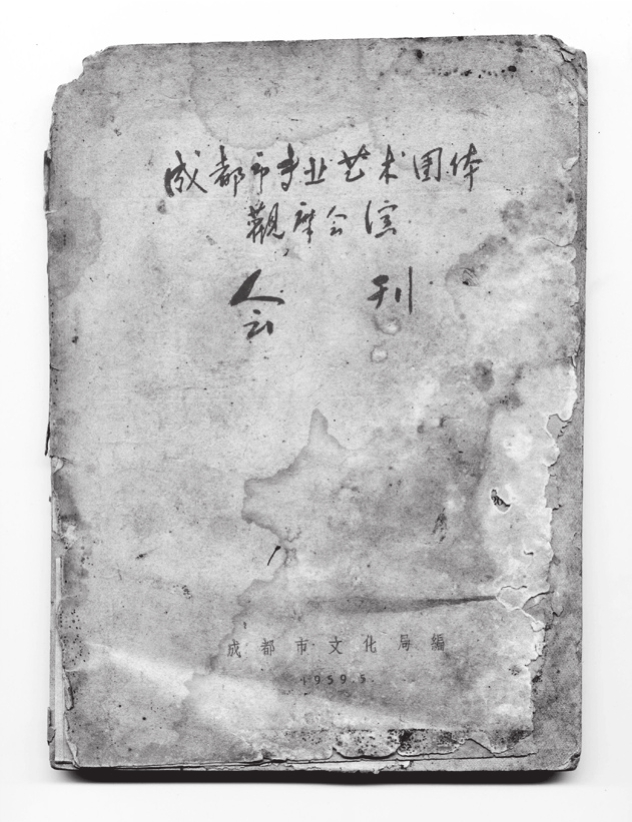 成都市专业艺术团体
觀摩会演
会刊
成都市文化局編
1959.5.